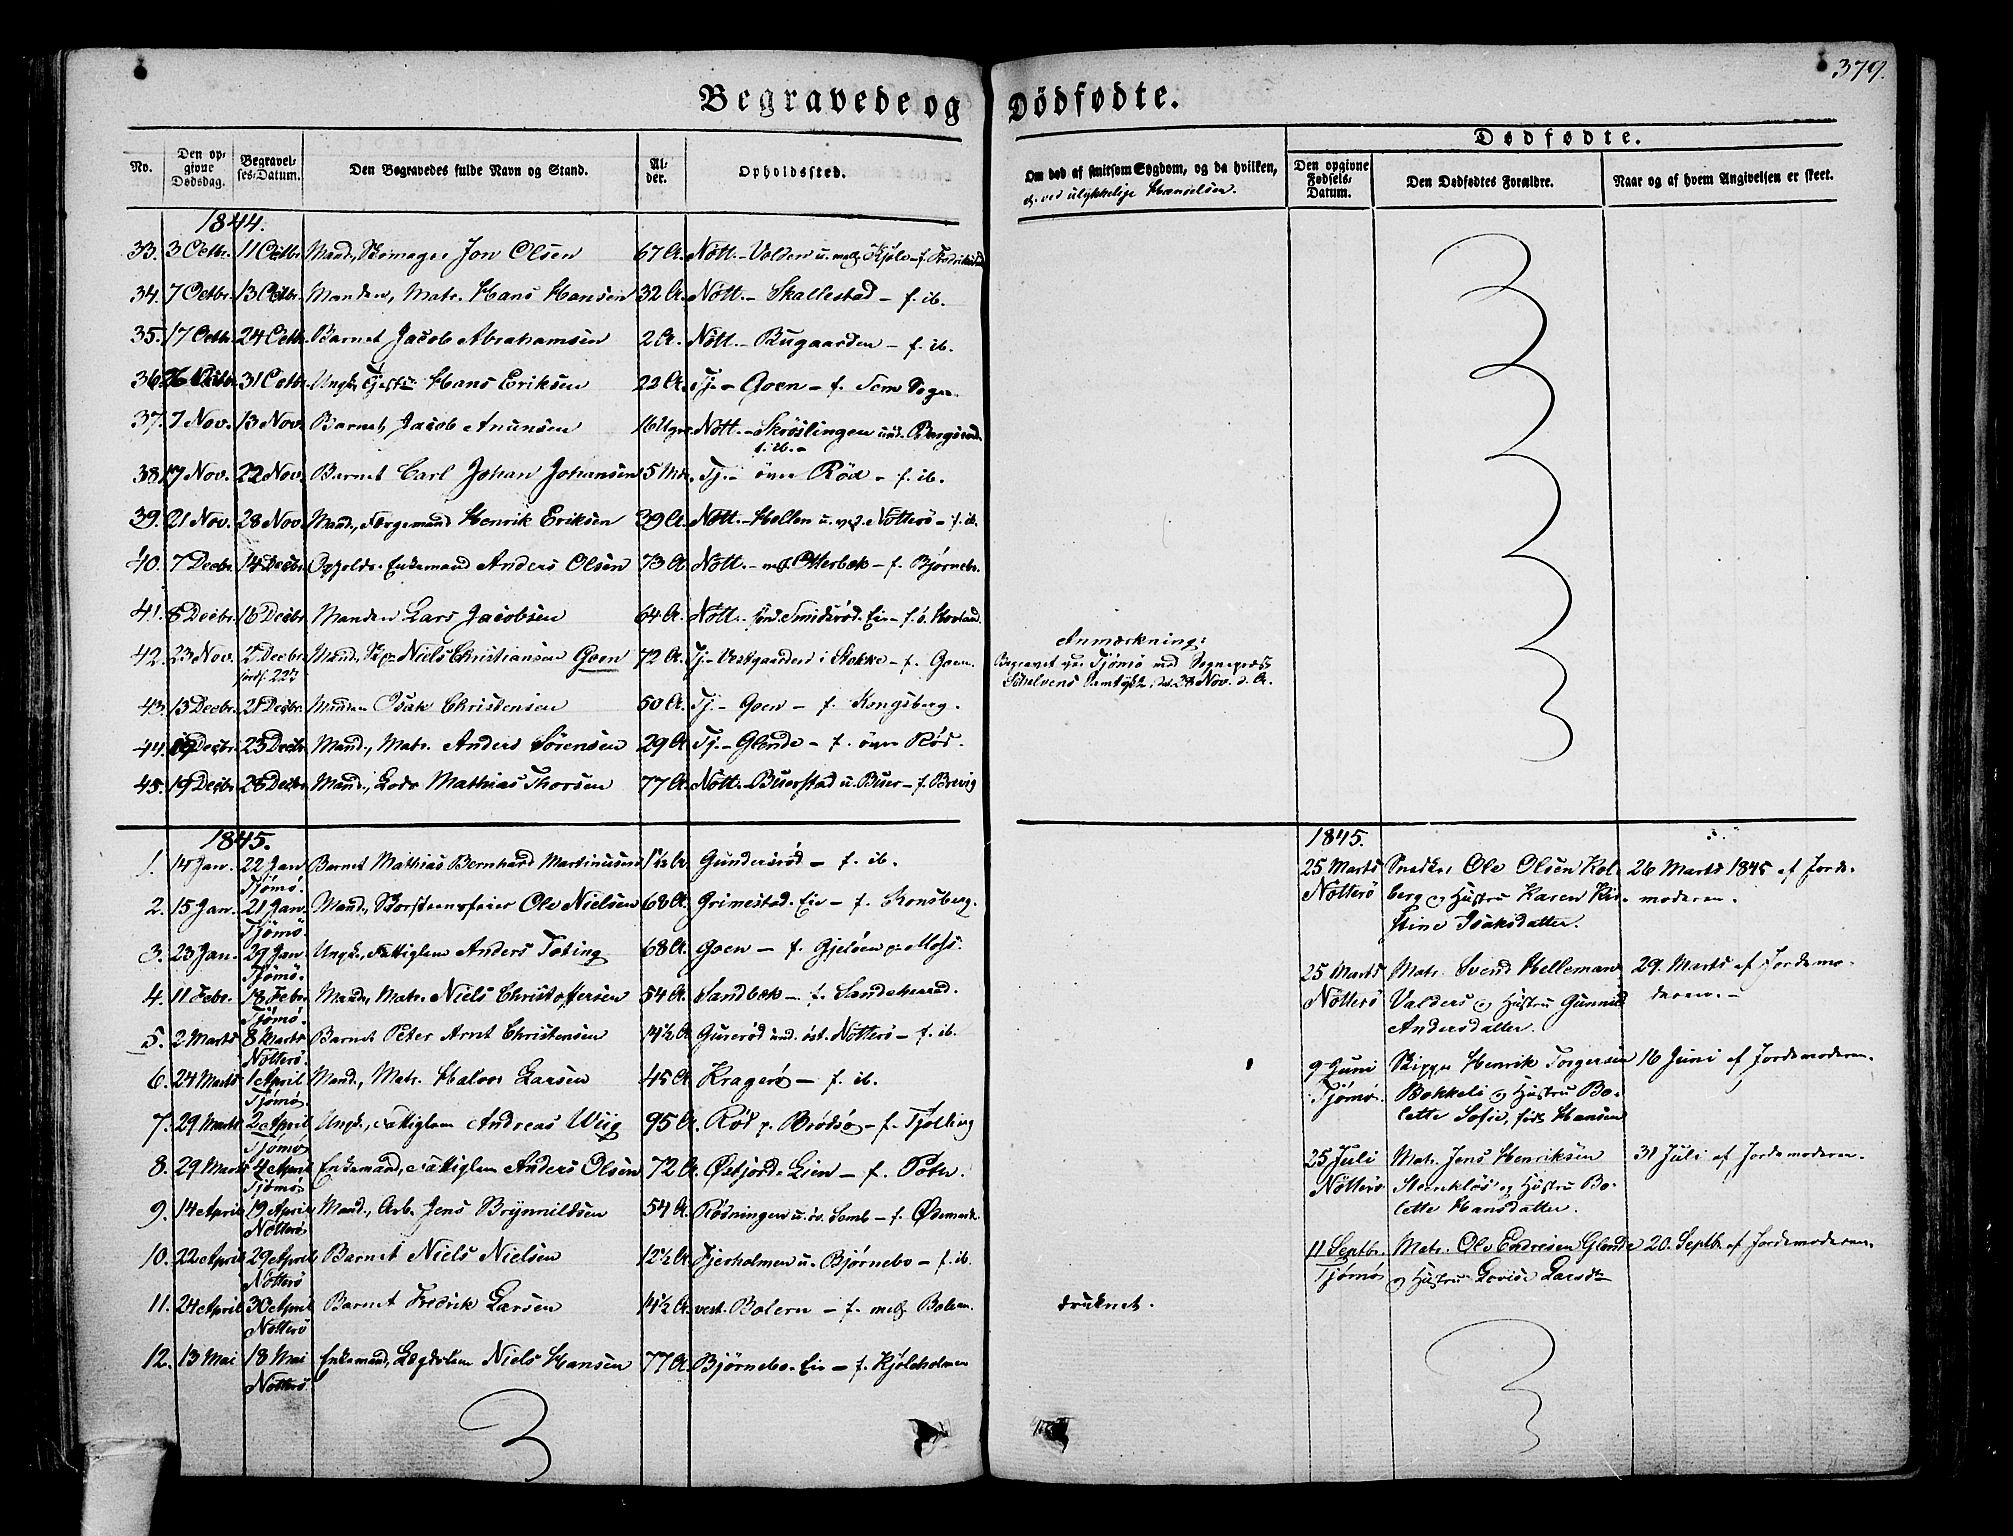 379.
Begravede og Dødfødte.
No.
Den opgivne Dødsdag.
Begravelses-Datum.
Den Begravedes fulde Navn og Stand.
Alder.
Opholdssted.
Om død af smitsom Sygdom, og da hvilken,
el. ved ulykkelige Hændelser.
Dødfødte.
Den opgivne Fødsels-Datum.
Den Dødfødtes Forældre.
Naar og af hvem Angivelsen er skeet.
1844.
33. 3 Octbr. 11 Octbr. Mand, Jon Olsen 67 A. Nött. - Volden u. Kjøle - f. Fredrikstad
34. 7 Octbr. 13 Octbr. Manden, Matr. Hans Hansen 32 A. Nött. - Skallestad - f. ib.
35. 17 Octbr. 24 Octbr. Barnet Jacob Abrahamsen 2 A. Nött. - Bugaarden - f. ib.
36. 26 Octbr. 31 Octbr. Ungk. Hans Eriksen 22 A. Tj. - Goen - f. Sem Sogn.
37. 7 Nov. 13 Nov. Barnet Jacob Anunsen 16 Uger Nött. - Skröslingen und.
f. ib. -
38. 17 Nov. 22 Nov. Barnet Carl Johan Johansen 5 Mdr. Tj. - övre Röd - f. ib.
39. 21 Nov. 28 Nov. Mand, Færgemand Henrik Eriksen 39 A. Nött. - Hellen u. Nötterö - f. ib.
40. 7 Decbr. 14 Decbr. Opholds. Enkemand Anders Olsen 73 A. Nött. - Otterbæk - f. Bjørnebo.
41. 8 Decbr. 16 Decbr. Manden Lars Jacobsen 64 A. Nött. - Smidsröd. Eie - f.
42. 23 Nov. 2 Decbr. Mand, Niels Christiansen Goen 72 A. Tj. - Vestgaarden i Stokke - f. Goen.
Anmærkning:
Begravet paa Tjömö med
Samtykke, dat. 28 Nov. d. A.
43. 13 Decbr. 21 Decbr. Manden Isak Christensen 50 A. Tj. - Goen - f. Kongsberg.
44. 19 Decbr. 23 Decbr. Mand, Matr. Anders Sörensen 29 A. Tj. - Glende - f. övre Röd.
45. 19 Decbr. 28 Decbr. Mand, Lods Mathias Thorsen 77 A. Nött. - Buerstad u. Buer - f. Brevig
1845.
1. 14 Jan. 22 Jan. Barnet Mathias Bernhard Martinussen 1½ A. Gundersröd - f. ib.
Tjömö.
2. 15 Jan. 21 Jan. Mand, Skorsteensfeier Ole Nielsen 68 A. Grimestad. Eie - f. Konsberg.
Tjömö.
3. 23 Jan. 29 Jan. Ungk., Fattiglem Anders Toting 68 A. Goen - f. Gjelöen p. Moss.
Tjömö.
4. 11 Febr. 18 Febr. Mand, Matr. Niels Christoffersen 54 A. Sandbæk - f. Sandeherred.
Tjömö.
5. 2 Marts 8 Marts Barnet Peter Arnt Christensen 14½ A. und. öst. Nötterö - f. ib.
Nötterö.
6. 24 Marts 1 April Mand, Matr. Halvor Larsen 45 A. Kragerö - f. ib.
Tjömö.
7. 29 Marts 2 April Ungk., Fattiglem Andreas Wiig 95 A. Röd p. Brödsö - f. Tjölling
Tjömö
8. 29 Marts 4 April Enkemand, Fattiglem Anders Olsen 72 A. Østjord. Eien - f.
Tjömö
9. 14 April 19 April Mand, Arb. Jens Brynnildsen 54 A. Rödningen u. öv. Semb - f.
Nötterö
10. 22 April 29 April Barnet Niels Nielsen 12½ A. Fjerholmen u. Bjørnebo - f. ib.
Nötterö
11. 24 April 30 April Barnet Fredrik Larsen 14½ A. vest. Bolern - f. Bolern. druknet.
Nötterö
12. 13 Mai 18 Mai Enkemand, Lægdslem Niels Hansen 77 A. Bjørnebo. Eie - f. Kjøleholmen
Nötterö.
1845.
25 Marts Snedker Ole Olsen Kol- 26 Marts 1845 af Jorde-
Nötterö berg og Hustru Karen Kir- moderen.
stine Isaksdatter.
25 Marts Matr. Svend Helleman 29. Marts af Jordemo-
Nötterö Valders og Hustru Gunnild deren. -
Andersdatter.
9 Juni Skipper Henrik Torgersen 16 Juni af Jordemoderen.
Tjömö. Bakkeli og Hustru Bo-
lette Sofie, född Hansen
25 Juli Matr. Jens Henriksen 31 Juli af Jordemoderen.
Nötterö Steenklös og Hustru Bo-
lette Hansdatter.
11 Septbr. Matr. Ole Endresen Glende 20. Septbr. af Jordemoderen.
Tjömö og Hustru Lovise Larsdtr